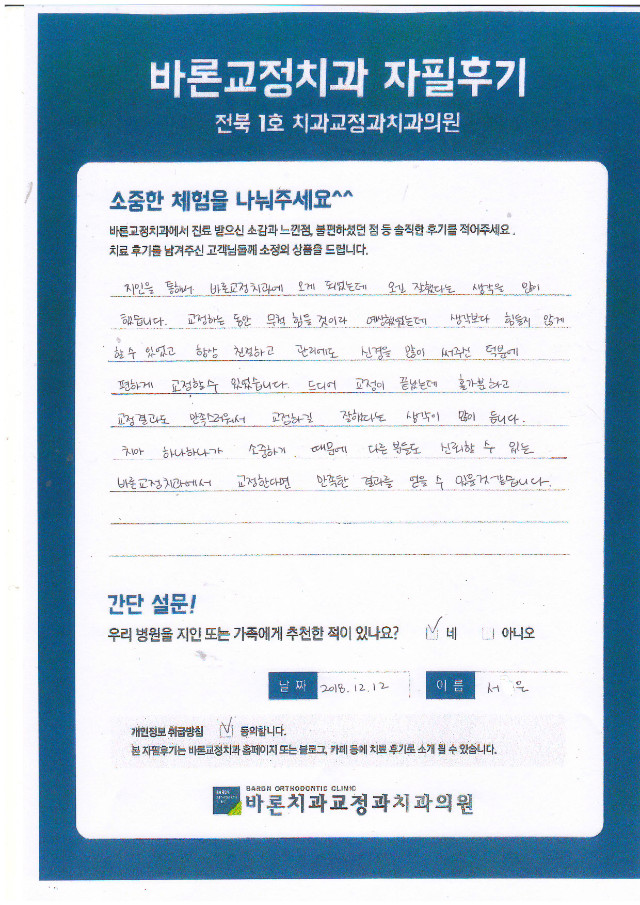 바론교정치과 자필후기
전북 1호 치과교정과치과의원
소중한 체험을 나눠주세요^^
바른교정치과에서 진료 받으신 소감과 느낀점, 불편하셨던 점 등 솔직한 후기를 적어주세요.
치료 후기를 남겨주신 고객님들께 소정의 상품을 드립니다.
지인을 통해서 바른교정치과에 오게 되었는데 오길 잘했다는 생각을 많이
했습니다. 교정하는 동안 무척 힘들 것이라 예상했었는데 생각보다 힘들지 않게
할 수 있었고 항상 친절하고 관리에도 신경을 많이 써주신 덕분에
편하게 교정할수 있었습니다. 드디어 교정이 끝났는데 홀가분하고
교정결과도 만족스러워서 교정하길 잘했다는 생각이 많이 듭니다.
치아 하나하나가 소중하기 때문에 다른 분들도 신뢰할 수 있는
바른교정치과에서 교정한다면 만족한 결과를 얻을 수 있을것 같습니다.
간단 설문!
우리 병원을 지인 또는 가족에게 추천한 적이 있나요? 네 아니오
날짜 2018.12.12 이름 서 은
개인정보 취급방침 동의합니다.
본 자필후기는 바론교정치과 홈페이지 또는 블로그, 카페 등에 치료 후기로 소개 될 수 있습니다.
BARON ORTHODONTIC CLINIC
바론치과교정과치과의원